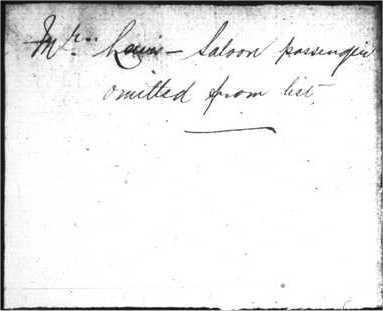 Mrs. Lewis – Saloon passenger
omitted from list.